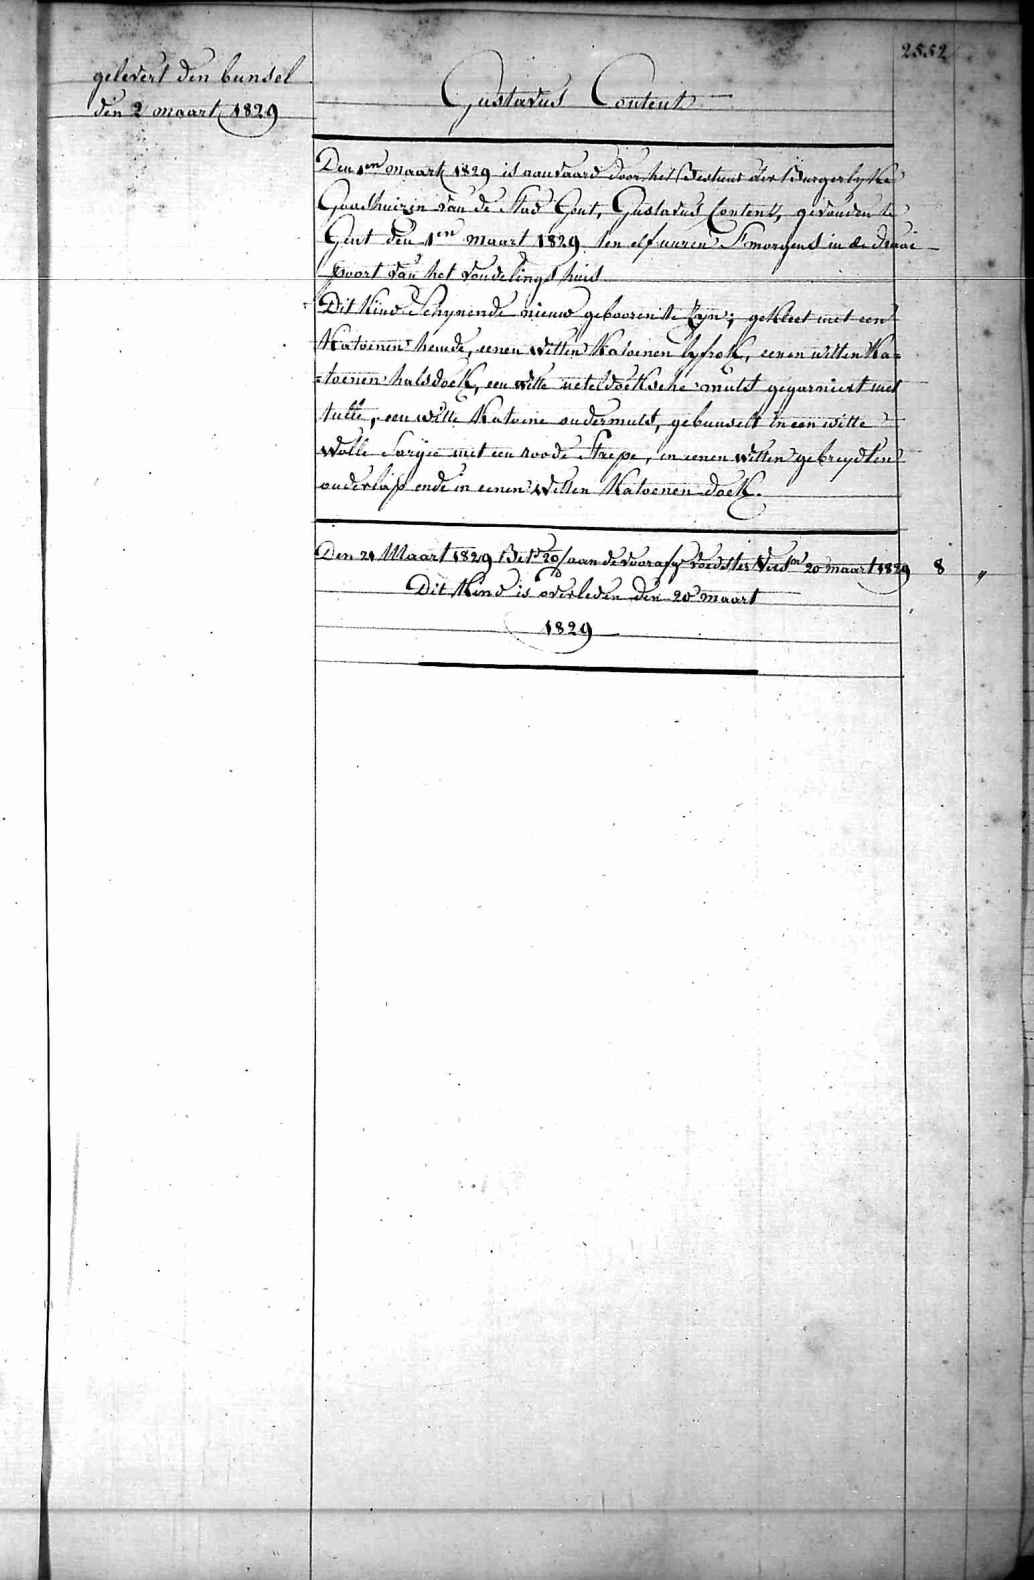 2552
gelevert den bunsel
den 2 maart 1829
Gustavus Content
Den 1en maart 1829 is aanvaard door het Bestuur der Burgerlyke
Goodshuizen van de Stad Gent, Gustavus Content, gevonden te
Gent den 1en maart 1829 ten elf uuren S'morgens in de draai
poort van het vondelings huis
Dit Kind Schynende nieuw gebooren te Zyn; gekleet met een
Katoenen hemde, eenen witten Katoenen lyfrok, eenen witten Ka=
=toenen halsdoek, een witte neteldoeksche muts gegarniert met
tulle, een witte Katoene ondermuts, gebunselt in een witte
wolle Sargie met een roode Strepe, en eenen witten gebreydden
onderlap ende in eenen witten Katoenen doek.
Den 21 Maart 1829 Bet. 20/ aan de voorafg. voedster Vers. 20 maart 1829 8 "
Dit Kind is overleden den 20 maart
1829